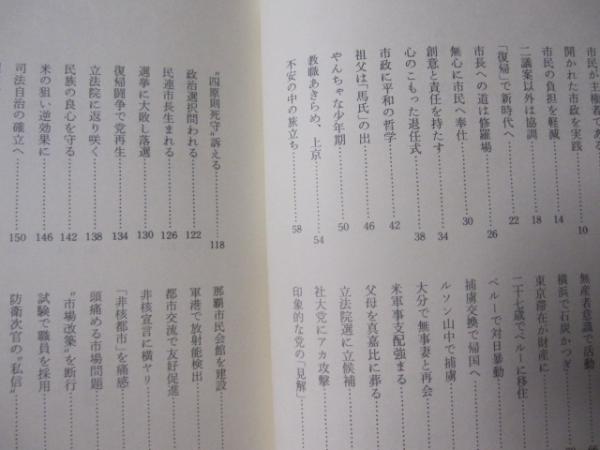 市民が主権者である……10
開かれた市政を実践……14
市民の負担を軽減……18
二議案以外は協調……22
「復帰」で新時代へ……26
市長への道は修羅場……30
無心に市民へ奉仕……34
創意と責任を持たす……38
心のこもった退任式……42
市政に平和の哲学……46
祖父は「馬氏」の出……50
やんちゃな少年期……54
教職あきらめ、上京……58
不安の中の旅立ち
無産者意識で活動
横浜で石炭かつぎ
東京滞在が財産に
二十七歳でペルーに移住
ペルーで対日暴動
捕虜交換で帰国へ
ルソン山中で捕虜
大分で無事妻と再会
米軍事支配強まる
父母を真嘉比に葬る
立法院選に立候補
社大党にアカ攻撃
印象的な党の「見解」
“四原則死守”訴える……118
政治選択問われる……122
民連市長生まれる……126
選挙に大敗し落選……130
復帰闘争で党再生……134
立法院に返り咲く……138
民族の良心を守る……142
米の狙い逆効果に……146
司法自治の確立へ……150
那覇市民会館を建設
軍港で放射能検出
都市交流で友好促進
非核宣言に横ヤリ
「非核都市」を痛感
頭痛める市場問題
“市場改築”を断行
試験で職員を採用
防衛次官の“私信”